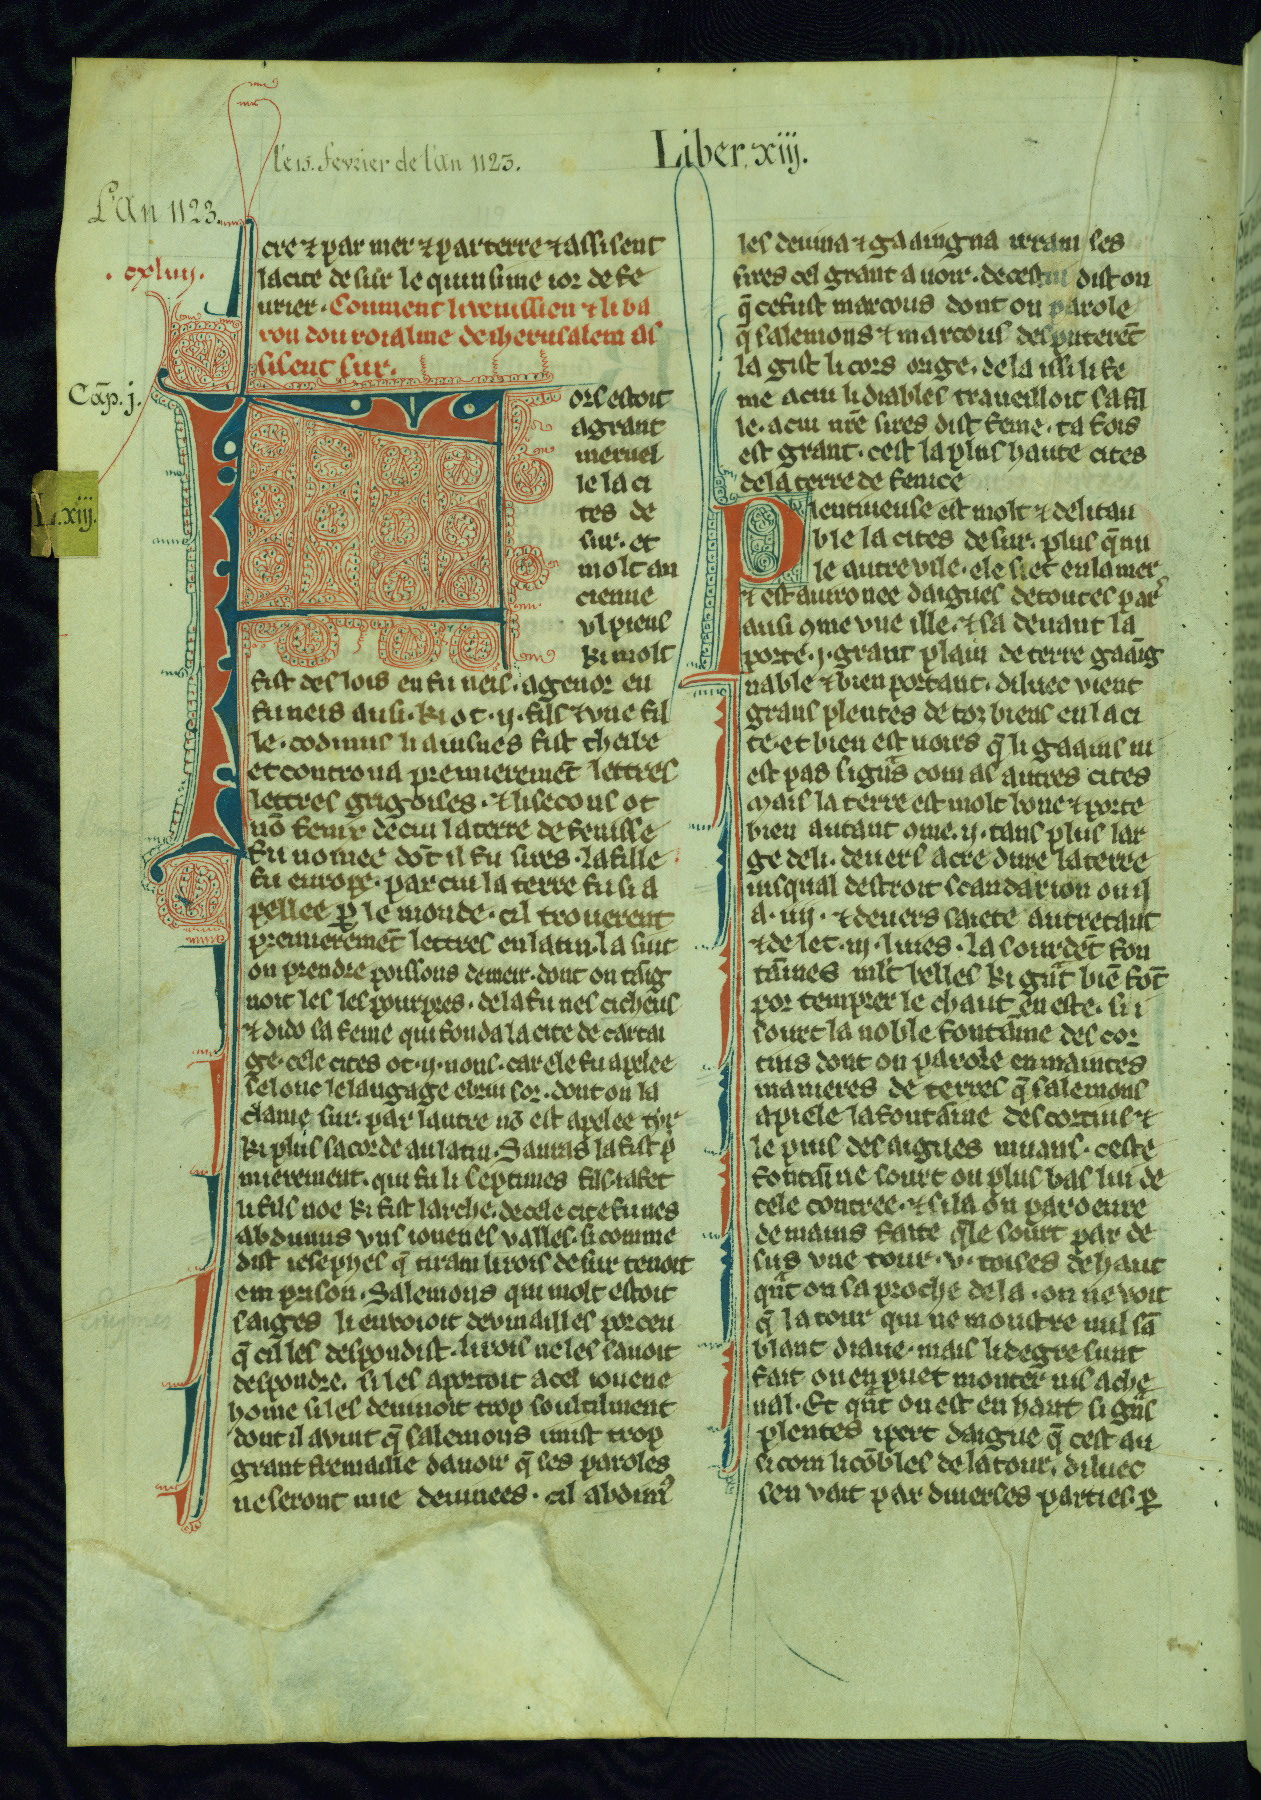 le 15. fevrier de l'an 1123.
Liber. xiij.
L'An 1123.
. cxluij.
Cāp. j.
L. xiij.
cre ⁊ par mer ⁊ par terre ⁊ assisent
la cite de sur le quinsime ior de fe
urier. Coument li venissien ⁊ li ba
ron dou roialme de iherusalem as
sisent sur.
ors estoit
a grant
mervel
le la ci
tes de
sur. et
molt an
cienne
vlpiens
ki molt
fist des lois en fu neis. agenor en
fu neis ausi. ki ot .ij. fils ⁊ vne fil
le. codmus li ainsnes fist thebe
et controua premieremēt lettres
lettres grigoises. ⁊ li secons ot
nō fenix de cui la terre de fenisse
fu nomee dōt il fu sires. la fille
fu europe. par cui la terre fu si a
pellee ꝑ le monde. cil trouerent
premieremēt lettres en latin. la siut
on prendre poissons de meir. dont on taīg
noit les les pourpres. de la fu nes cicheus
⁊ dido sa feme qui fonda la cite de cartai
ge. cele cites ot .ij. nons. car ele fu apelee
selonc le langage ebriu sor. dont on la
claime sur. par lautre nō est apelee tyr
ki plus sacorde au latin. Sauras la fist ꝑ
mierement. qui fu li septimes fils iafet
li fils noe ki fist larche. de cele cite fu nes
abdimus vns iouenes valles. si comme
dist iosephes q̄ tirant li rois de sur tenoit
em prison. Salemons qui molt estoit
saiges li envoioit deuinailles por ceu
q̄ cil les despondist. li rois ne les sauoit
despondre. si les aportoit a cel iouene
home si les deuinoit trop soultilment
dont il avint q̄ salemons mist trop
grant fremaille dauoir q̄ ses paroles
ne seront mie deuinees. cil abdim9
les deuina ⁊ gaaingna irram ses
sires cel grant auoir. de cestui dist on
q̄ ce fust marcous dont on parole
q̄ salemons ⁊ marcous desputerēt
la gist li cors orige. de la issi li fe
me a cui li diables traueilloit sa fil
le. a cui nr̄e sires dist feme. ta fois
est grant. cest la plus haute cites
de la terre de fenice
Plentiueuse est molt ⁊ delitau
ble la cites de sur. plus q̄ nu
le autre vile. ele siet en la mer
⁊ est auironee daigues de toutes par
ausi ꝯme vne ille. ⁊ sa deuant la
porte .j. grant plain de terre gaaīg
nable ⁊ bien portant. diluec vient
grans plentes de tor biens en la ci
te. et bien est uoirs q̄ li gaains ni
est pas si grās com as autres cites
Mais la terre est molt bone ⁊ porte
bien autant ꝯme .ij. tans plus lar
ge de li. deuers acre dure la terre
iusqual destroit scandarion ou il
a .iiij. ⁊ deuers saiete autretant
⁊ de let .iij. liues. la sourdēt fon
taines ml't belles ki grāt biē fōt
por temprer le chaut en este. si i
sourt la noble fontaine des cor
tius dont on parole en maintes
manieres de terres q̄ salemons
apiele la fontaine des cortius ⁊
le puis des aigues viuans. ceste
fontaīne sourt ou plus bas liu de
cele contree. ⁊ si la on par oeure
de mains faite q̄le sourt par de
sus vne tour .v. toises de haut
qāt on saproche de la. on ne voit
q̄ la tour qui ne moustre nul sā
blant diaue. mais li degre sunt
fait ou en puet monter nis a che
ual. Et qāt on est en haut si grās
plentes ipert daigue q̄ cest au
si com li cōbles de la tour. diluec
sen vait par diuerses parties. ꝑ